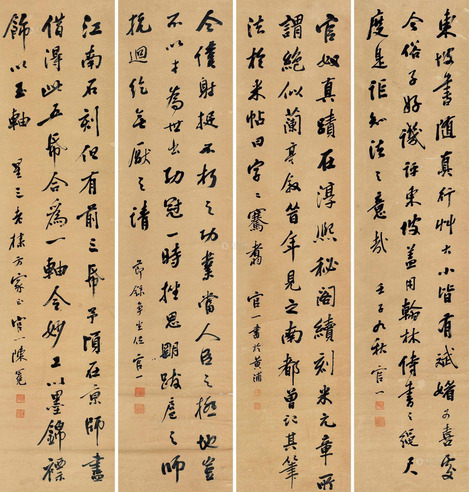 東坡書隨真行艸大小皆有斌媚可喜處
今俗子好譏評東坡蓋用翰林侍書之繩尺
度是詎知法之意哉 壬子九秋官一
官奴真蹟在淳熙秘閣續刻米元章所
謂絕似蘭亭敘昔年見之南都曾記其筆
法於米帖曰字々騫翥 官一書於黃浦
今僕射挺不朽之功業當人臣之極地豈
不以才為世出功冠一時挫思明跋扈之師
抗迴紇無厭之請 節錄争坐位 官一
江南石刻但有前三帋予頃在京師盡
借得此五帋合為一軸令妙工以墨錦褾
飾以玉軸 星三老棣方家正 官一陳冕